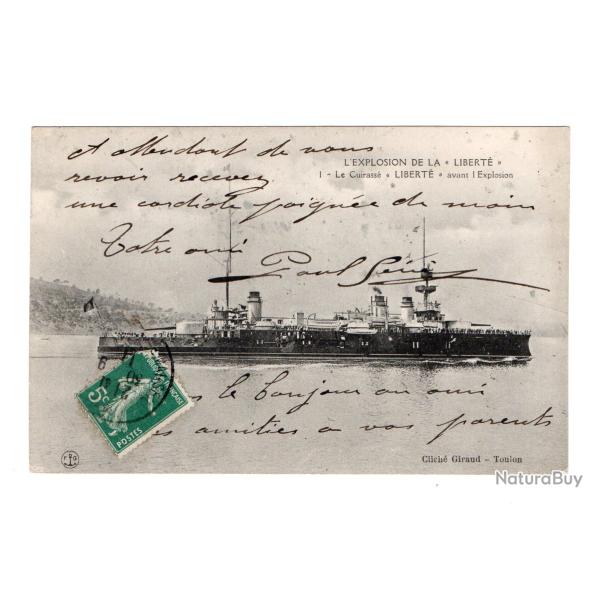 L'EXPLOSION DE LA « LIBERTÉ »
1 - Le Cuirassé « LIBERTÉ » avant l'Explosion
Attendant de vous
revoir recevez
une cordiale poignée de main
Votre ami
Paul
le bonjour au ami
amitiés a vos parents
5c
POSTES
Cliché Giraud - Toulon
NaturaBuy